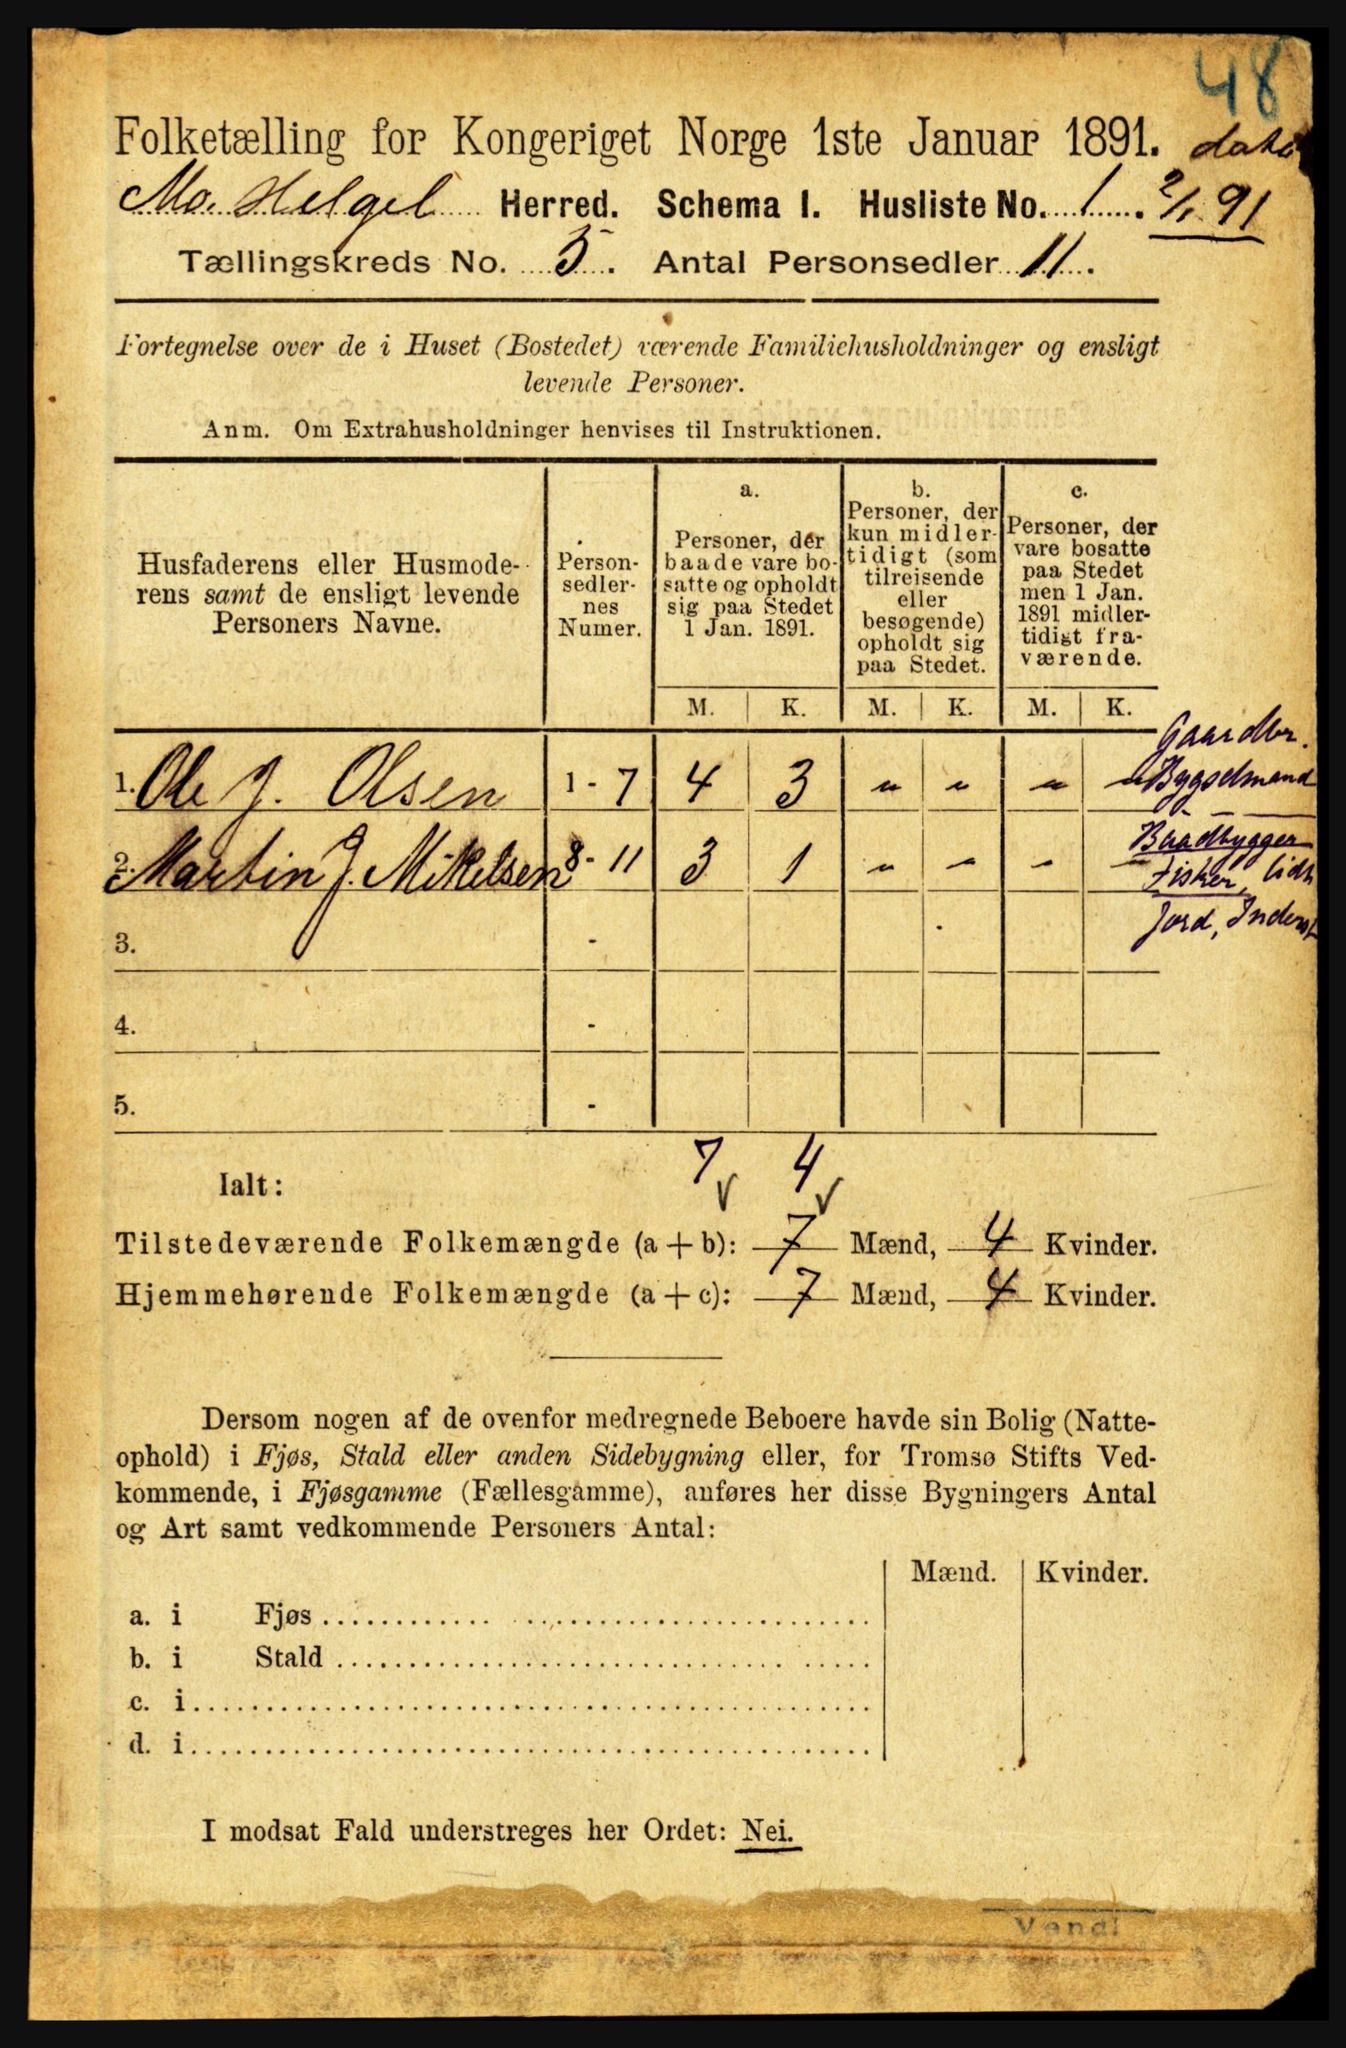 48
Folketælling for Kongeriget Norge 1ste Januar 1891.
Mo. Helgel Herred. Schema I. Husliste No. 1. 2/1 91
Tællingskreds No. 5. Antal Personsedler 11.
Fortegnelse over de i Huset (Bostedet) værende Familiehusholdninger og ensligt
levende Personer.
Anm. Om Extrahusholdninger henvises til Instruktionen.
Husfaderens eller Husmode-
rens samt de ensligt levende
Personers Navne.
Person-
sedler-
nes
Numer.
a.
Personer, der
baade vare bo-
satte og opholdt
sig paa Stedet
1 Jan. 1891.
b.
Personer, der
kun midler-
tidigt (som
tilreisende
eller
besøgende)
opholdt sig
paa Stedet.
c.
Personer, der
vare bosatte
paa Stedet
men 1 Jan.
1891 midler-
tidigt fra-
værende.
M. K. M. K. M. K.
Gaardbr.
1. Ole J. Olsen 1 - 7 4 3 " " " " Bygselmand
Baadbygger
2. Martin J. Mikelsen 8 - 11 3 1 " " " "
Fisker, lidt
Jord, Inderst
3. -
4. -
5. -
7 4
Ialt:
Tilstedeværende Folkemængde (a + b): 7 Mænd, 4 Kvinder.
Hjemmehørende Folkemængde (a + c): 7 Mænd, 4 Kvinder.
Dersom nogen af de ovenfor medregnede Beboere havde sin Bolig (Natte-
ophold) i Fjøs, Stald eller anden Sidebygning eller, for Tromsø Stifts Ved-
kommende, i Fjøsgamme (Fællesgamme), anføres her disse Bygningers Antal
og Art samt vedkommende Personers Antal:
Mænd. Kvinder.
a. i Fjøs
b. i Stald
c. i
d. i
I modsat Fald understreges her Ordet: Nei.
Vend!